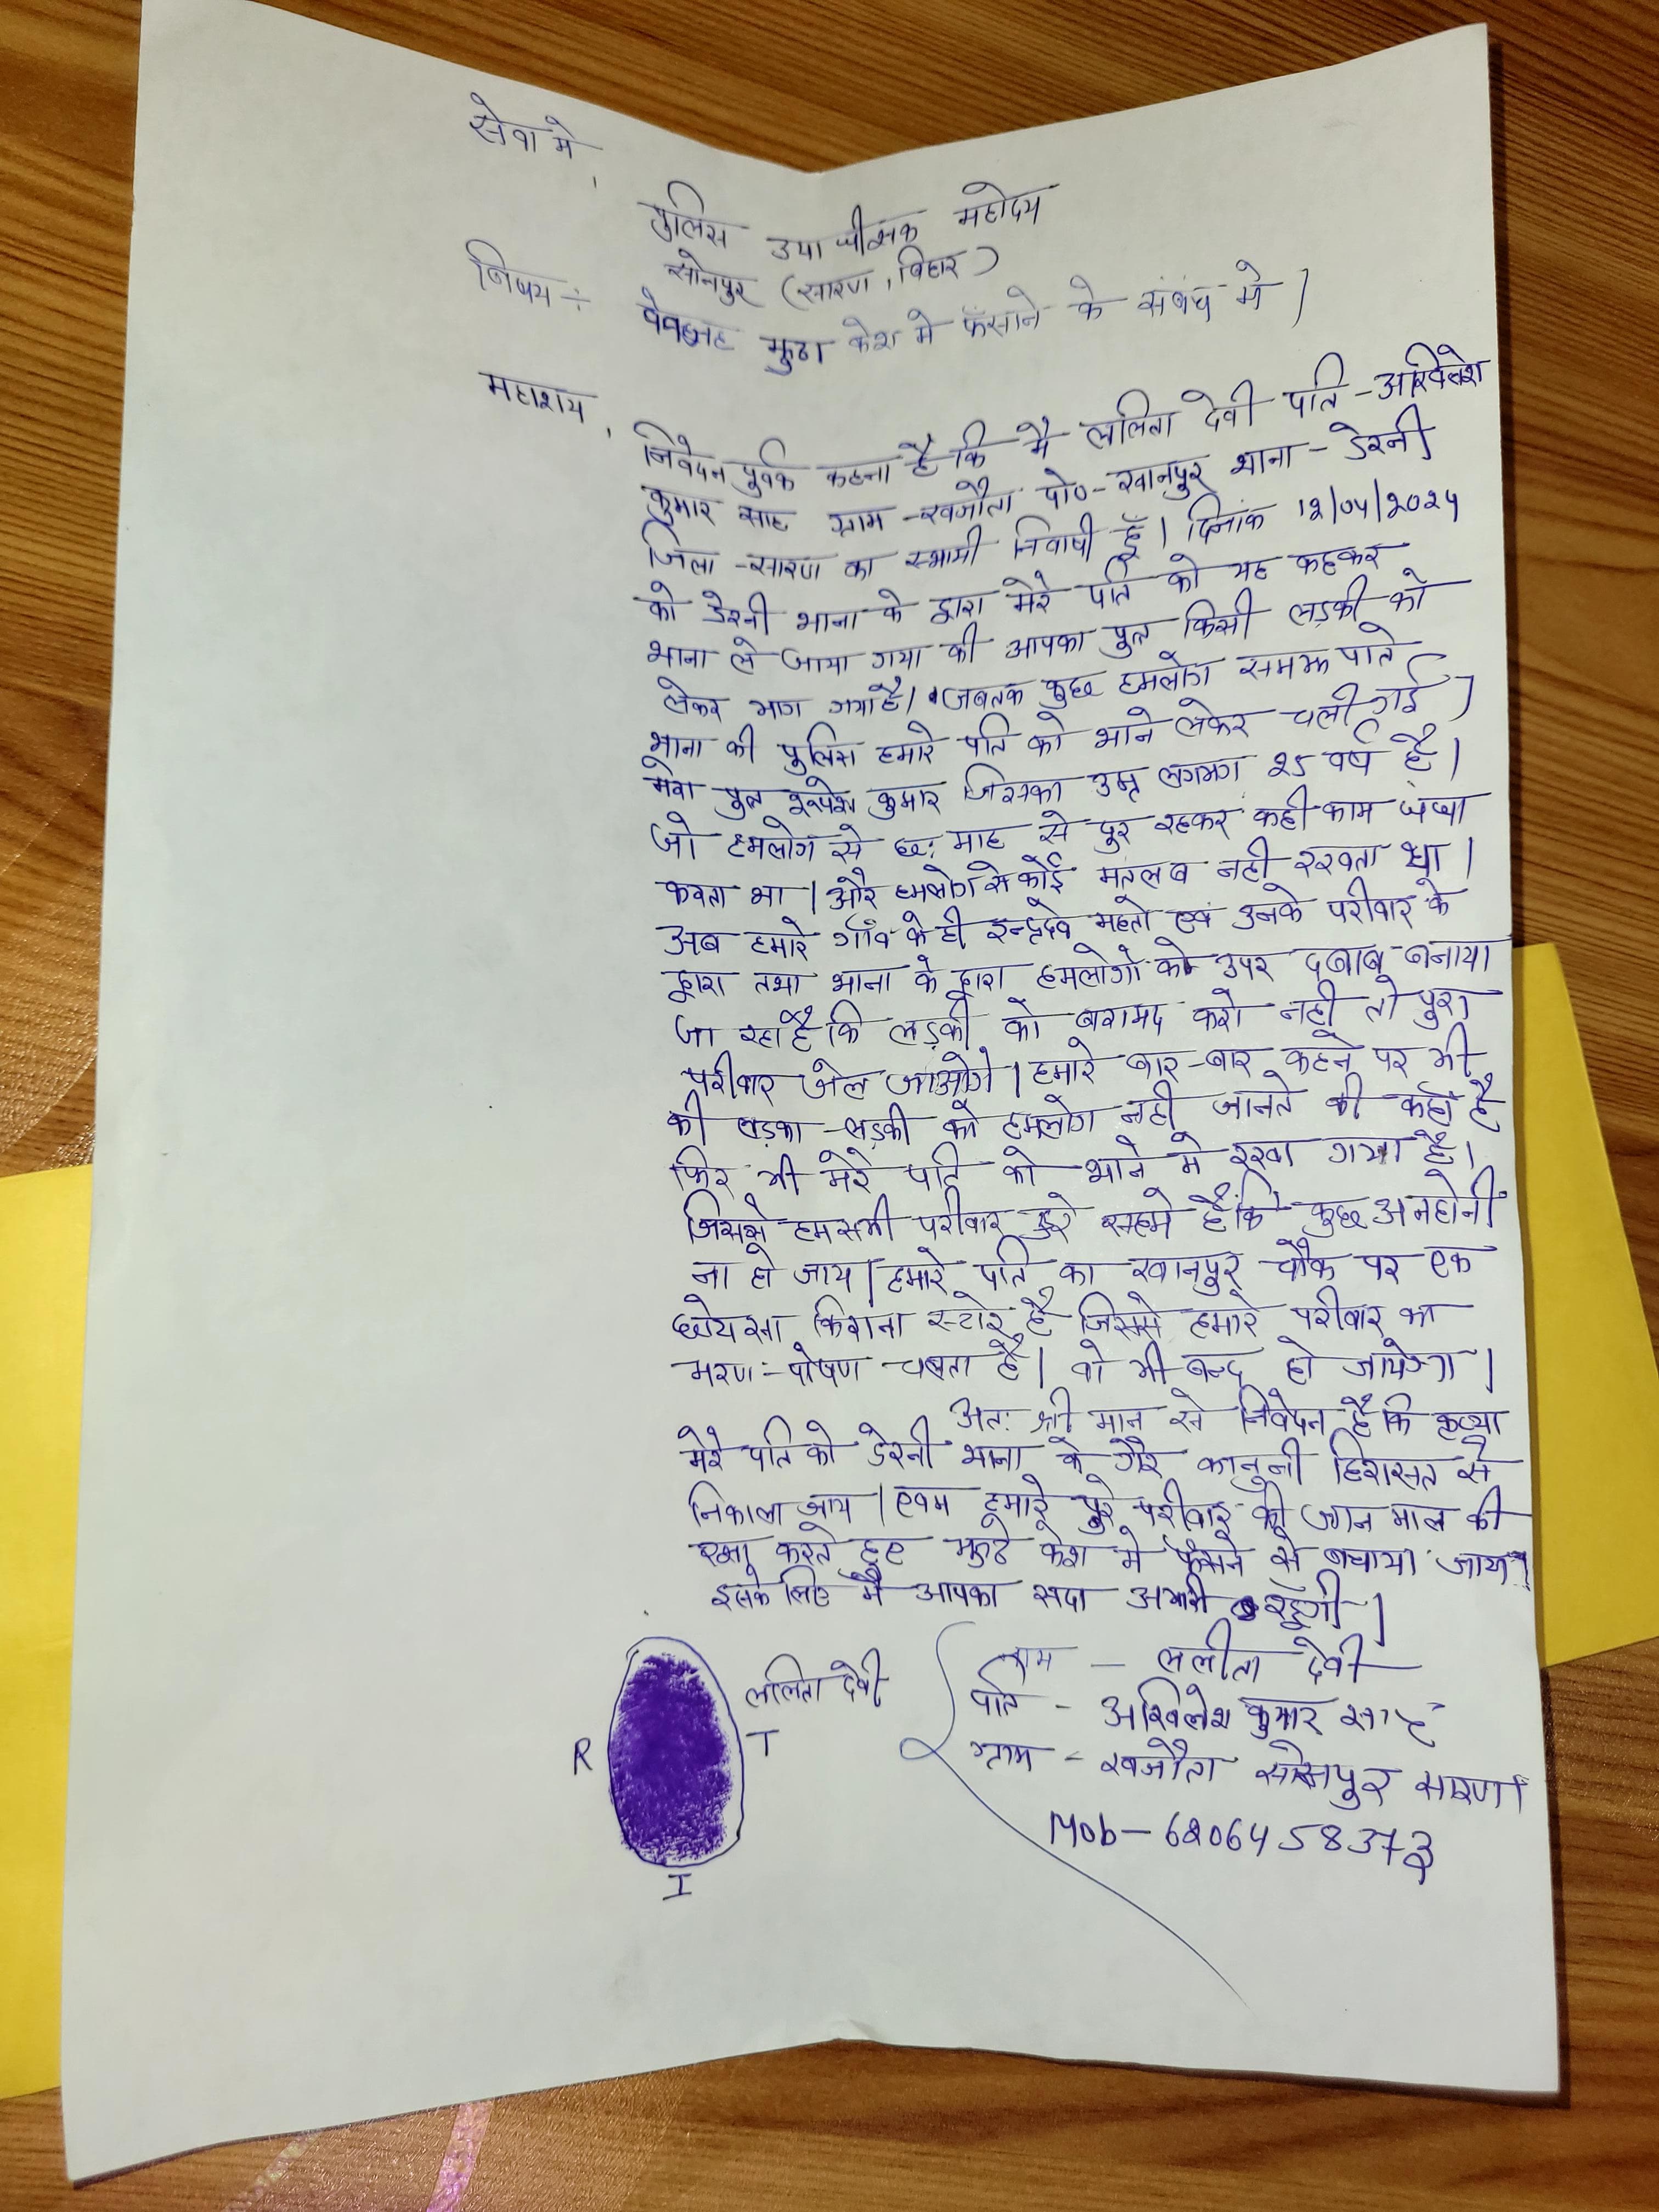 सेवा मे,
पुलिस उपाधीक्षक महोदय
सोनपुर (सारण, बिहार)
विषय ÷ वेवजह झुठा केश मे फँसाने के संबंध मे।
महाशय,
निवेदन पुर्वक कहना है कि मै ललिता देवी पति - अखिलेश
कुमार साह ग्राम - खजौता पो० - खानपुर थाना - डेरनी
जिला - सारण का स्थायी निवाषी हूँ। दिनांक 12/04/2024
को डेरनी थाना के द्वारा मेरे पति को यह कहकर
थाना ले जाया गया की आपका पुत्र किसी लड़की को
लेकर भाग गया है। जबतक कुछ हमलोग समझ पाते
थाना की पुलिस हमारे पति को थाने लेकर चली गई।
मेरा पुत्र रूपेश कुमार जिसका उम्र लगभग 25 वर्ष है।
जो हमलोग से छः माह से दुर रहकर कही काम धंधा
करता था। और हमलोग से कोई मतलब नही रखता था।
अब हमारे गाँव के ही इन्द्रदेव महतो एवं उनके परीवार के
द्वारा तथा थाना के द्वारा हमलोगो के उपर दबाब बनाया
जा रहा है कि लड़की को बरामद करो नही तो पुरा
परीवार जेल जाओगे। हमारे बार-बार कहने पर भी
की लड़का-लड़की को हमलोग नही जानते की कहाँ है
फिर भी मेरे पति को थाने मे रखा गया है।
जिससे हम सभी परीवार डरे सहमे है कि कुछ अनहोनी
ना हो जाय। हमारे पति का खानपुर चौक पर एक
छोटा सा किराना स्टोर है जिससे हमारे परीवार का
भरण-पोषण चलता है। वो भी बन्द हो जायेगा।
अतः श्री मान से निवेदन है कि कृप्या
मेरे पति को डेरनी थाना के गैर कानुनी हिरासत से
निकाला जाय। एवम हमारे पुरे परीवार की जान माल की
रक्षा करते हुए झुठे केश मे फँसने से बचाया जाय।
इसके लिए मै आपका सदा अभारी रहूँगी।
नाम - ललीता देवी
ललिता देवी
पति - अखिलेश कुमार साह
R T
ग्राम - खजौता सोनपुर सारण।
Mob - 6206458373
I